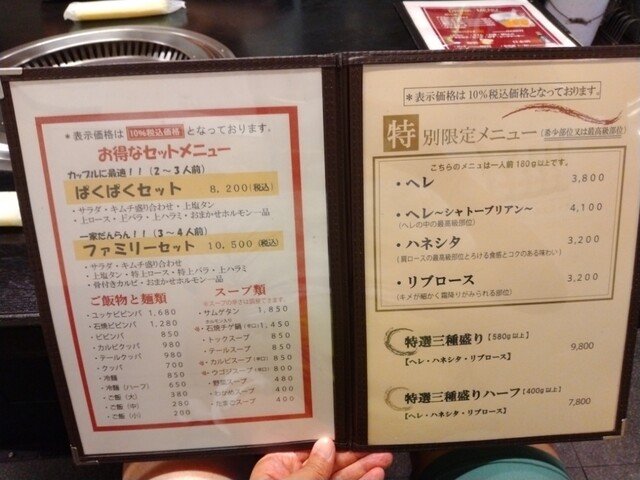 ＊表示価格は 10％税込価格 となっております。
お得なセットメニュー
カップルに最適！！（2～3人前）
ぱくぱくセット 8,200（税込）
・サラダ・キムチ盛り合わせ・上塩タン
・上ロース・上バラ・上ハラミ・おまかせホルモン一品
一家だんらん！！（3～4人前）
ファミリーセット 10,500（税込）
・サラダ・キムチ盛り合わせ
・上塩タン・特上ロース・特上バラ・上ハラミ
・骨付きカルビ・おまかせホルモン一品
ご飯物と麺類
・ユッケビビンバ 1,680
・石焼ビビンバ 1,280
・ビビンバ 850
・カルビクッパ 980
・テールクッパ 980
・クッパ 700
・冷麺 850
・冷麺（ハーフ） 650
・ご飯（大） 380
・ご飯（中） 280
・ご飯（小） 200
スープ類
※スープの辛さは調節できます。
・サムゲタン 1,850
・石焼チゲ鍋（辛口） 1,450
・トックスープ 850
・テールスープ 850
・カルビスープ（辛口） 850
・ウゴジスープ（辛口） 800
・野菜スープ 480
・わかめスープ 400
・たまごスープ 400
＊表示価格は10％税込価格となっております。
特別限定メニュー（希少部位又は最高級部位）
こちらのメニュは一人前180g以上です。
・ヘレ 3,800
・ヘレ～シャトーブリアン～ 4,100
（ヘレの中の最高級部位）
・ハネシタ 3,200
（肩ロースの最高級部位とろける食感とコクのある味わい）
・リブロース 3,200
（キメが細かく霜降りがみられる部位）
特選三種盛り【580g以上】 9,800
【ヘレ・ハネシタ・リブロース】
特選三種盛りハーフ【400g以上】 7,800
【ヘレ・ハネシタ・リブロース】